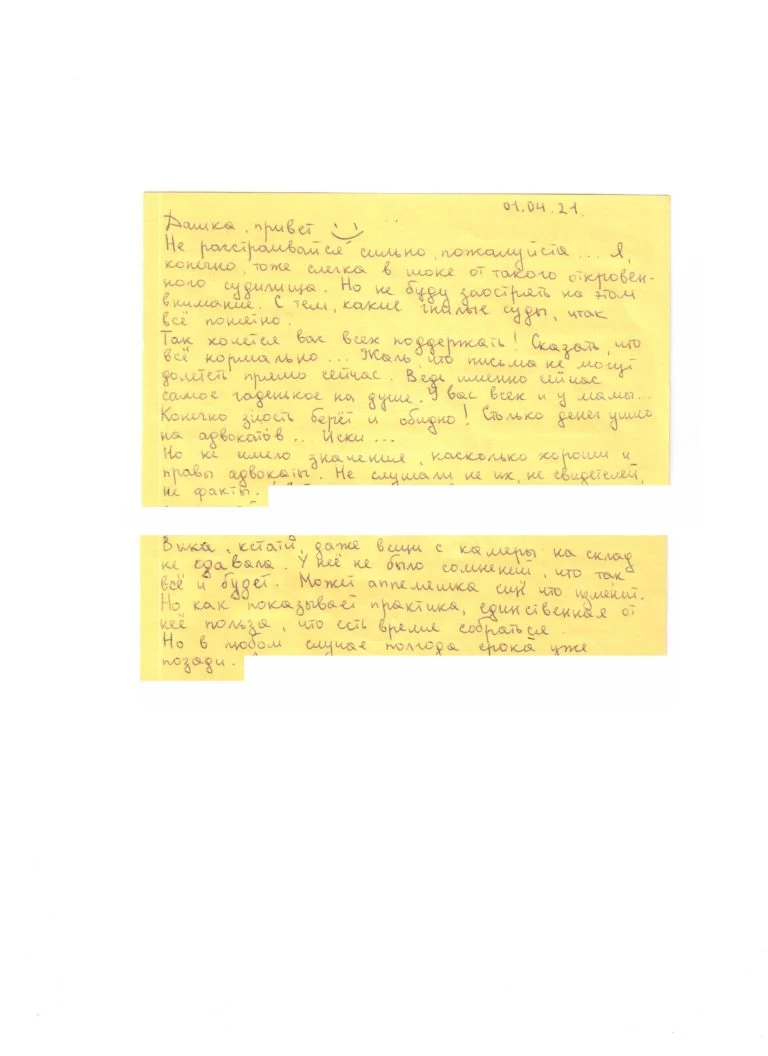 01.04.21.
Дашка, привет
Не расстраивайся сильно, пожалуйста... Я,
конечно, тоже слегка в шоке от такого откровен-
ного судилища. Но не буду заострять на этом
внимание. С тем, какие гнилые суды, итак
всё понятно.
Так хочется вас всех поддержать! Сказать, что
всё нормально... Жаль что письма не могут
долететь прямо сейчас. Ведь именно сейчас
самое гаденькое на душе. У вас всех и у мамы...
Конечно злость берёт и обидно! Столько денег ушло
на адвокатов.. Иски...
Но не имело значения, насколько хороши и
правы адвокаты. Не слушали не их, не свидетелей,
не факты.
Вика, кстати, даже вещи с камеры на склад
не сдавала. У неё не было сомнений, что так
всё и будет. Может аппеляшка что изменит.
Но как показывает практика, единственная от
неё польза, что есть время собраться.
Но в любом случае полгода срока уже
позади.